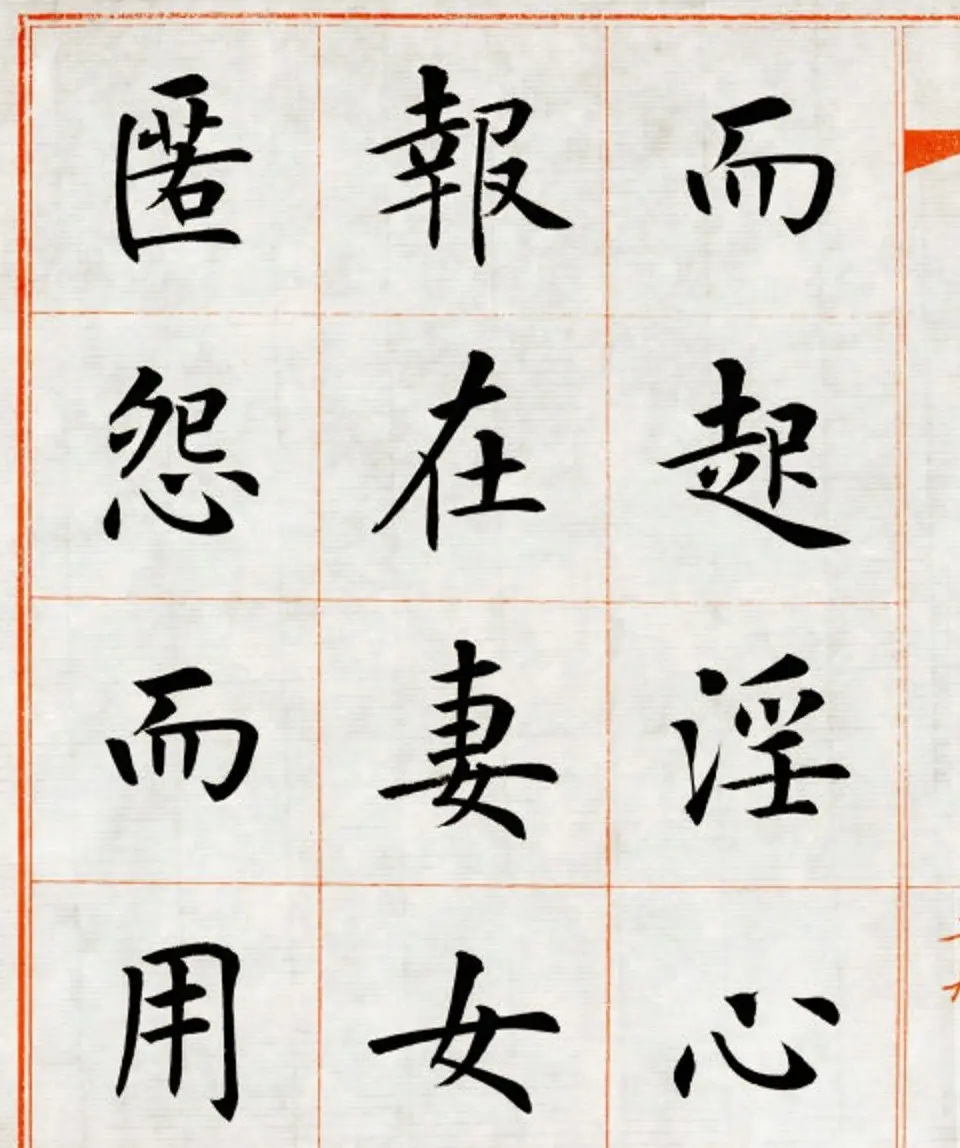 而起淫心
報在妻女
匿怨而用